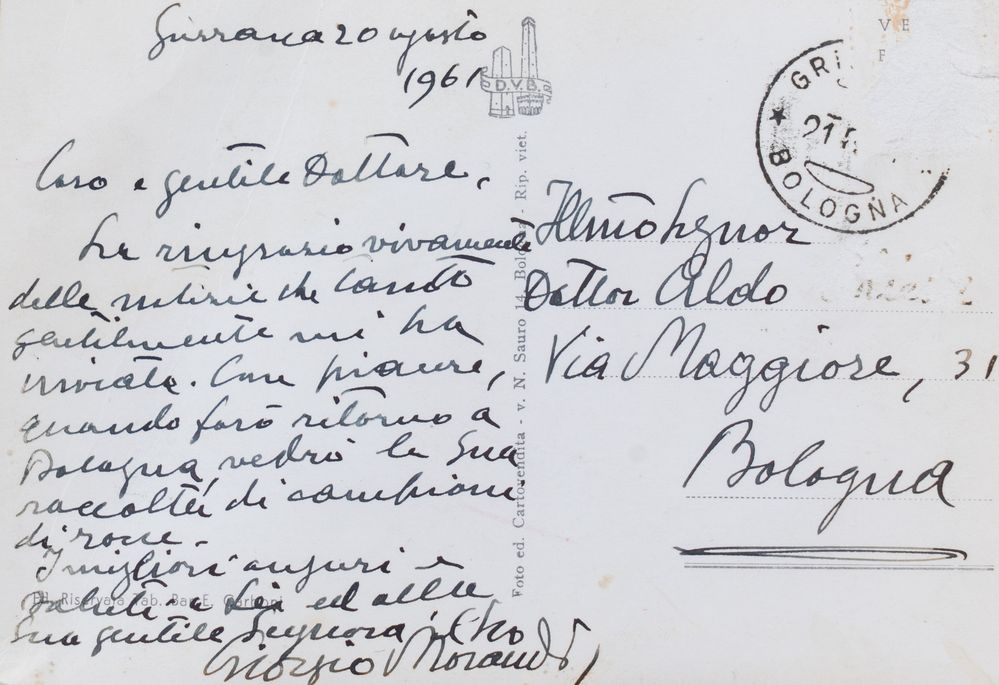 Grizzana 20 agosto
1961
Caro e gentile Dottore,
La ringrazio vivamente
delle notizie che tanto
gentilmente mi ha
inviate. Con piacere,
quando farò ritorno a
Bologna, vedrò la Sua
raccolta di campioni
di rocce.
I migliori auguri e
saluti a Lei ed alla
Sua gentile Signora, Suo
Giorgio Morandi
Ed. Riservata Tab. Bar E.
D.V.B.
Foto ed. Cartovendita - v. N. Sauro 14, Bologna - Rip. viet.
VE
F
GRI
21
BOLOGNA
Illmo Signor
Dottor Aldo
Via Maggiore, 31
Bologna